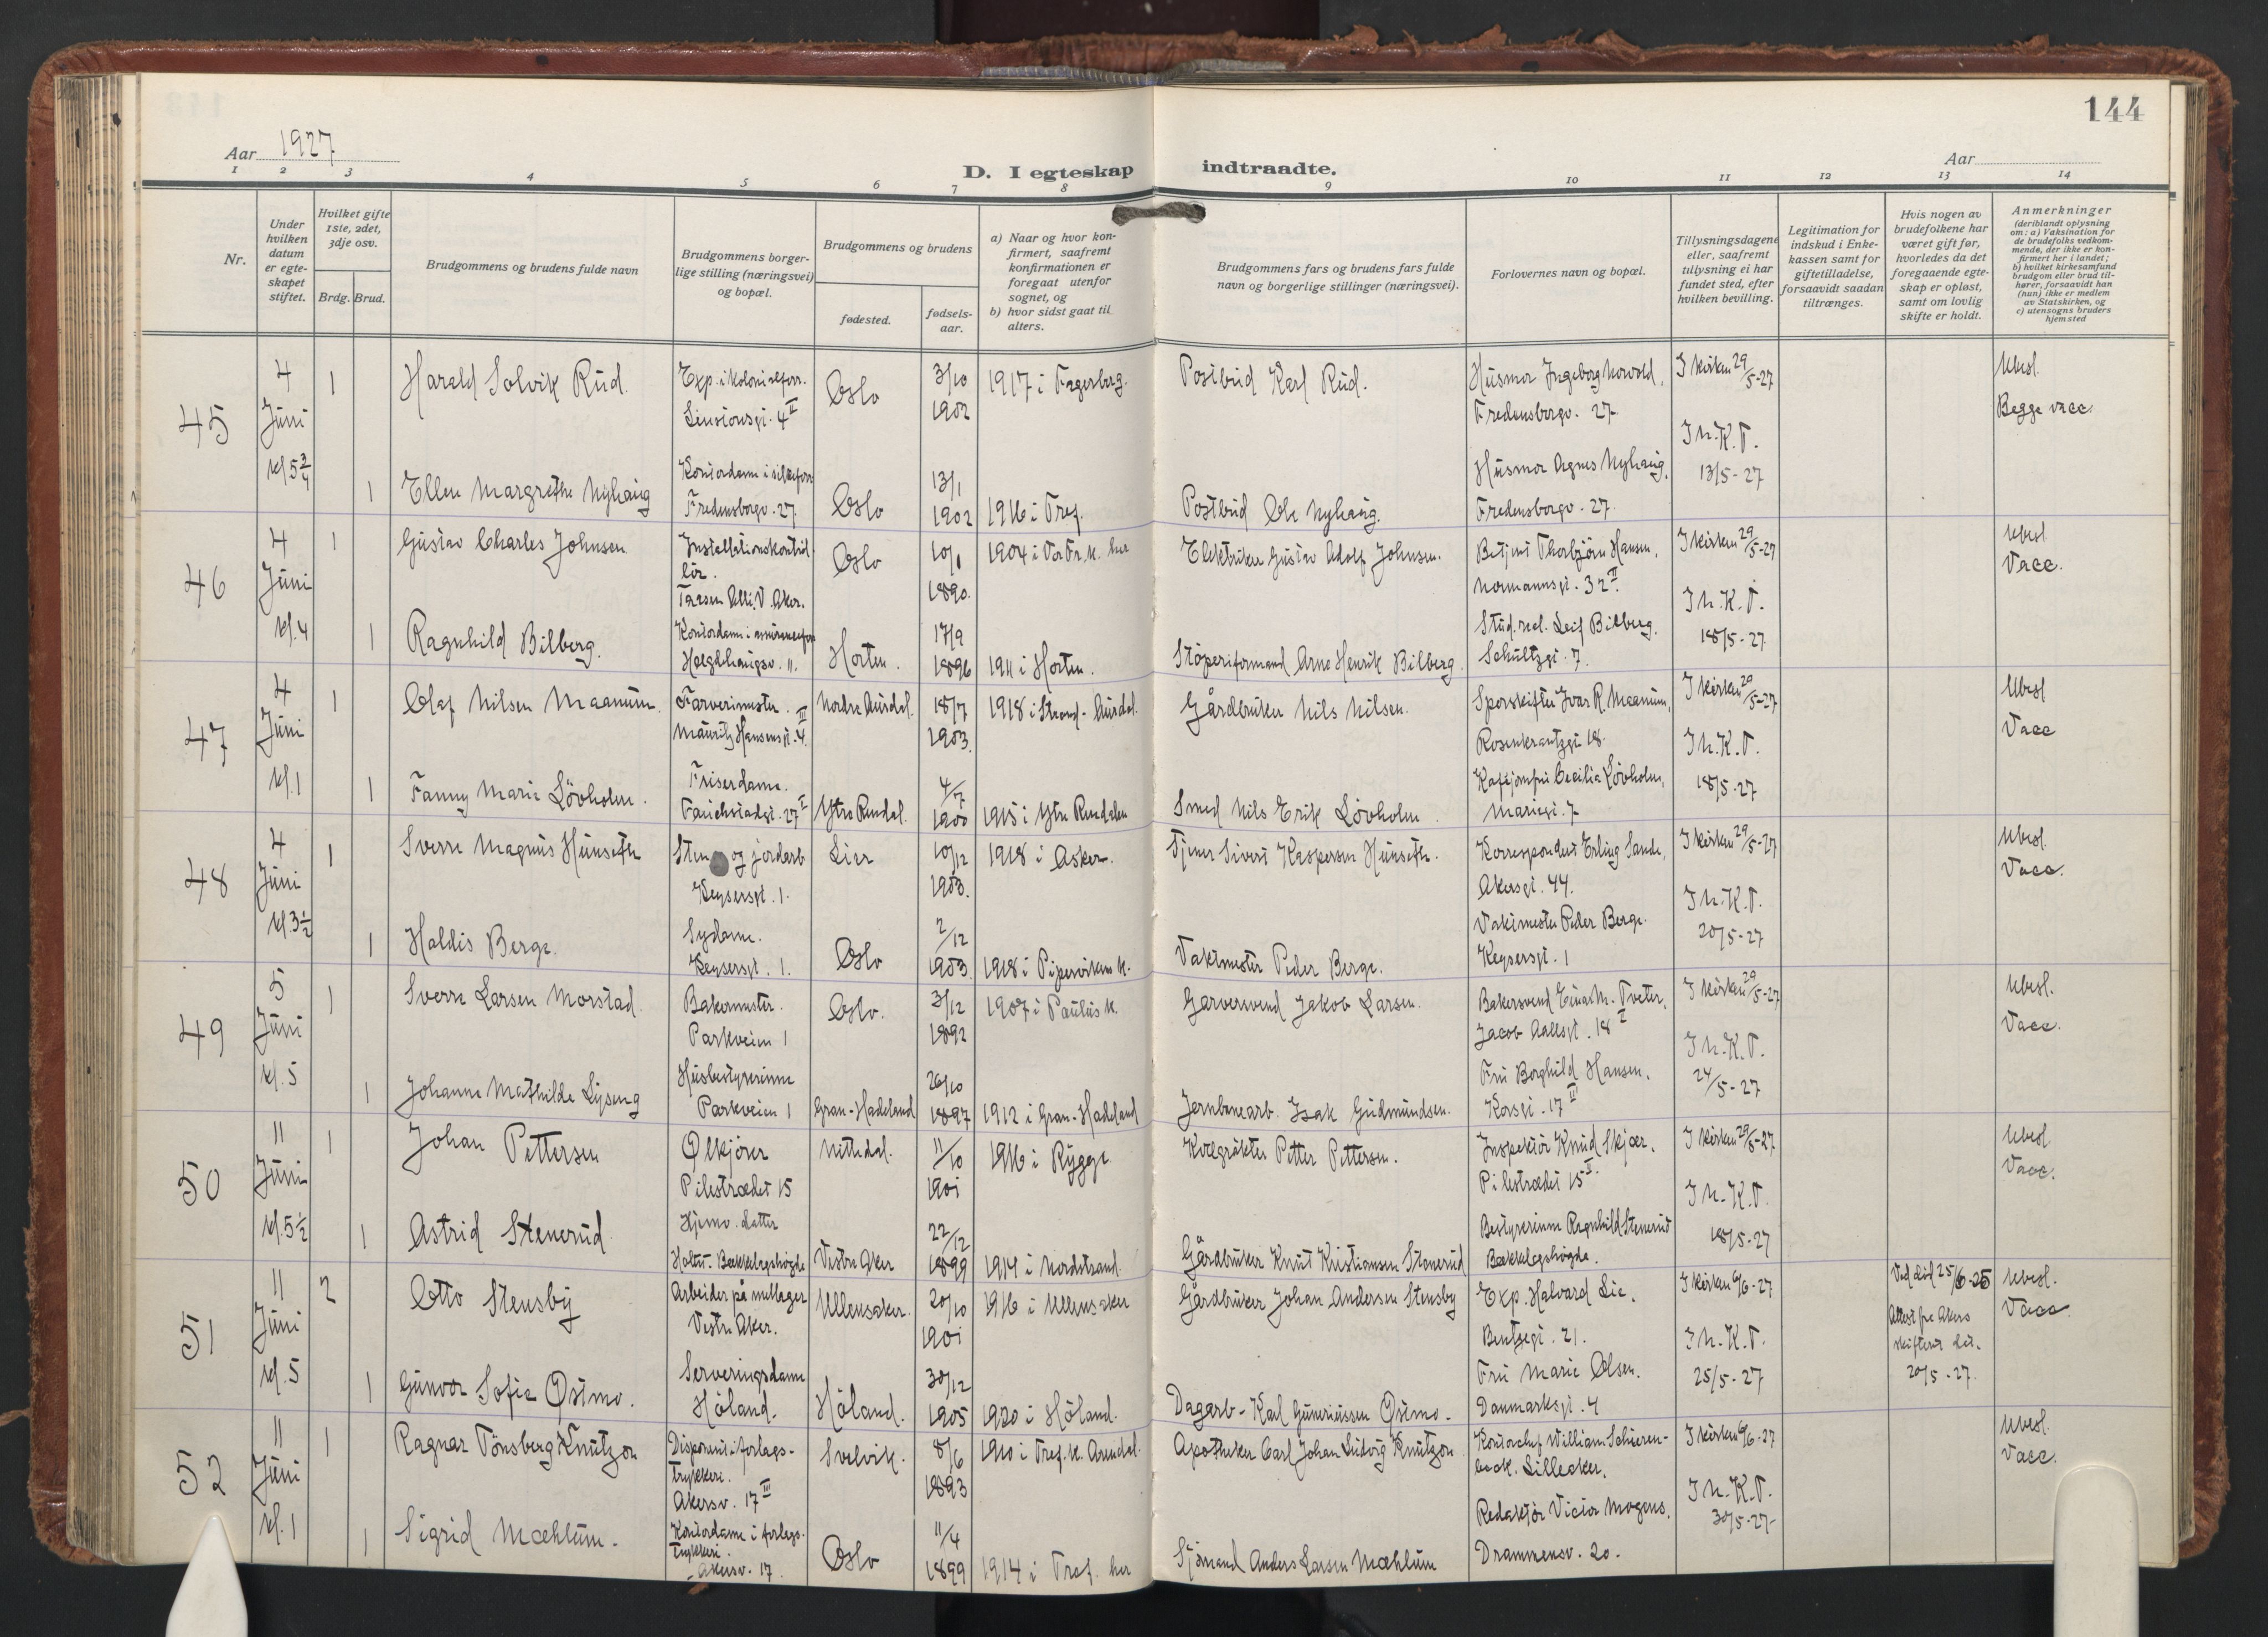 144
Aar 1927
Aar
D. I egteskap indtraadte.
1 2 3 4 5 6 7 8 9 10 11 12 13 14
Nr.
Under hvilken datum er egteskapet stiftet.
Hvilket gifte 1ste, 2det, 3dje osv.
Brdg. Brud.
Brudgommens og brudens fulde navn
Brudgommens borgerlige stilling (næringsvei) og bopæl.
Brudgommens og brudens
fødested.
fødselsaar.
a) Naar og hvor konfirmert, saafremt konfirmationen er foregaat utenfor sognet, og
b) hvor sidst gaat til alters.
Brudgommens fars og brudens fars fulde navn og borgerlige stillinger (næringsvei).
Forlovernes navn og bopæl.
Tillysningsdagene eller, saafremt tillysning ei har fundet sted, efter hvilken bevilling.
Legitimation for indskud i Enkekassen samt for giftetilladelse, forsaavidt saadan tiltrænges.
Hvis nogen av brudefolkene har været gift før, hvorledes da det foregaaende egteskap er opløst, samt om lovlig skifte er holdt.
Anmerkninger
(deriblandt oplysning om: a) Vaksination for de brudefolks vedkommende, der ikke er konfirmert her i landet; b) hvilket kirkesamfund brudgom eller brud tilhører, forsaavidt han (hun) ikke er medlem av Statskirken, og c) utensogns bruders hjemsted
45
4 Juni kl 5 3/4
1 Harald Solvik Rud. Exp. i kolonialforr. 4 II Oslo 3/10 1902 1917 i Fagerborg. Postbud Karl Rud. Husmor Ingeborg Norvold, Fredensborgv. 27 I kirken 29/5-27 Ubesl. Begge vacc.
I h. K. T. 13/5-27
1 Ellen Margrethe Nyhaug Kontordame i Fredensborgv. 27 Oslo 13/1 1902 1916 i Tref. Postbud Ole Nyhaug. Husmor Agnes Nyhaug, Fredensborgv. 27.
46
4 Juni kl. 4
1 Gustav Charles Johnsen Installationskontrollør. Aker. Oslo 10/1 1890. 1904 i Vor Fr. K. her Elektriker Gustav Adolf Johnsen. Betjent Thorbjørn Hansen, Normannsgt. 32 II. I kirken 29/5-27 Ubesl Vacc.
I h. K. T. 18/5-27
1 Ragnhild Bilberg. Kontordame i Hægdehaugsv. 11. Horten. 17/9 1896 1911 i Horten. Støperiformand Arne Henrik Bilberg. Stud. real. Leif Bilberg. Schultzgt. 7.
47
4 Juni kl. 1
1 Olaf Nilsen Maanum. Farverimester. Mauritz Hansensgt. 4 III Nordre Aurdal. 18/7 1903. 1918 i Strand - Aurdal. Gårdbruker Nils Nilsen. Sporskifter Ivar R. Maanum, Rosenkrantzgt 18. I kirken 29/5-27 Ubesl Vacc
I h. K. T. 18/5-27
1 Fanny Marie Løvholm. Friserdame. Fauchaldsgt. 27 I Ytre Rendal. 4/7 1900 1915 i Ytre Rendalen Smed Nils Erik Løvholm. Kafejomfru Cecilia Løvholm, Mariegt. 7
48
4 Juni kl. 3 1/2
1 Sverre Magnus Hunseth Sten og jordarb Keysersgt. 1. Lier 10/12 1903. 1918 i Asker. Tjener Sivert Kaspersen Hunseth. Korrespondent Erling Sande, Akersgt. 44. I kirken 29/5-27 Ubesl. Vacc.
I h. K. T. 20/5-27
1 Haldis Berge. Sydame. Keysersgt. 1. Oslo 2/12 1903. 1918 i Pipervikens K. Vaktmester Peder Berge. Vaktmester Peder Berge. Keysersgt. 1
49
5 Juni kl. 5
1 Sverre Larsen Morstad. Bakermester. Parkveien 1 Oslo. 3/12 1892 1907 i Paulus K. Garversvend Jakob Larsen. Bakersvend Einar M. Tveter, Jacob Aallsgt. 18 I I kirken 29/5-27 Ubesl. Vacc.
I h. K. T. 24/5-27
1 Johanne Mathilde Lyseng Husbestyrerinne Parkveien 1 Gran - Hadeland 26/10 1897 1912 i Gran - Hadeland Jernbanearb. Isak Gudmundsen. Fru Borghild Hansen, Korsgt. 17 II
50
11 Juni kl. 5 1/2
1 Johan Pettersen Ølkjører Pilestrædet 15 Nittedal. 11/10 1901 1916 i Rygge Petter Pettersen. Inspektør Knud Skjær. Pilestrædet 15 II. I kirken 29/5-27 Ubesl. Vacc.
I h. K. T. 18/5-27
1 Astrid Stenerud. Hjemv. datter Holtet. Bækkelagshøgda Vestre Aker 22/12 1899 1914 i Nordstrand. Gårdbruker Knut Kristiansen Stenerud Bestyrerinne Ragnhild Stenerud Bækkelagshøgda.
51
11 Juni kl. 5
2 Otto Stensby Arbeider på mellager Vestre Aker. Ullensaker. 20/10 1901 1916 i Ullensaker Gårdbruker Johan Andersen Stensby Exp. Halvard Lie. Bentsegt. 21. I kirken 6/6-27 Ved død 25/6-25 Attest fra Akers skifterett dat. 20/5-27. Ubesl. Vacc.
I h. K. T. 25/5-27
1 Gunvor Sofie Østmo. Serveringsdame Høland. Høland. 30/12 1905 1920 i Høland. Dagarb. Karl Guneriussen Østmo. Fru Marie Olsen. Danmarksgt. 4
52
11 Juni kl. 1
1 Ragnar Tönsberg Knutzon Disponent i forlagstrykkeri. Akersv. 17 III Svelvik. 8/6 1893 1910 i Tref. K. Arendal. Apotheker Carl Johan Ludvig Knutzon Kontorchef William Lilleaker. I kirken 6/6-27 Ubesl. Vacc.
I h. K. T. 30/5-27
1 Sigrid Mæhlum. Kontordame i forlagstrykkeri. Akersv. 17 Oslo 11/4 1899 1914 i Tref. her Sjømand Anders Larsen Mæhlum Redaktør Victor Mogens, Drammensv. 20.